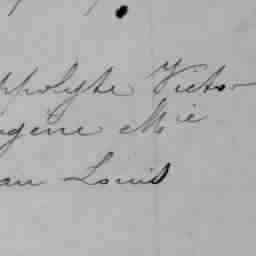 ppolyte Victo
ugène Mie
ean Louis